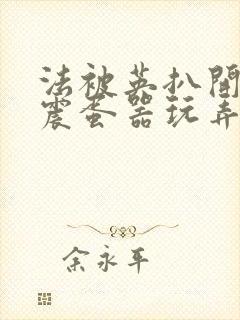 法被英扒開
震蛋器玩弄
余永平